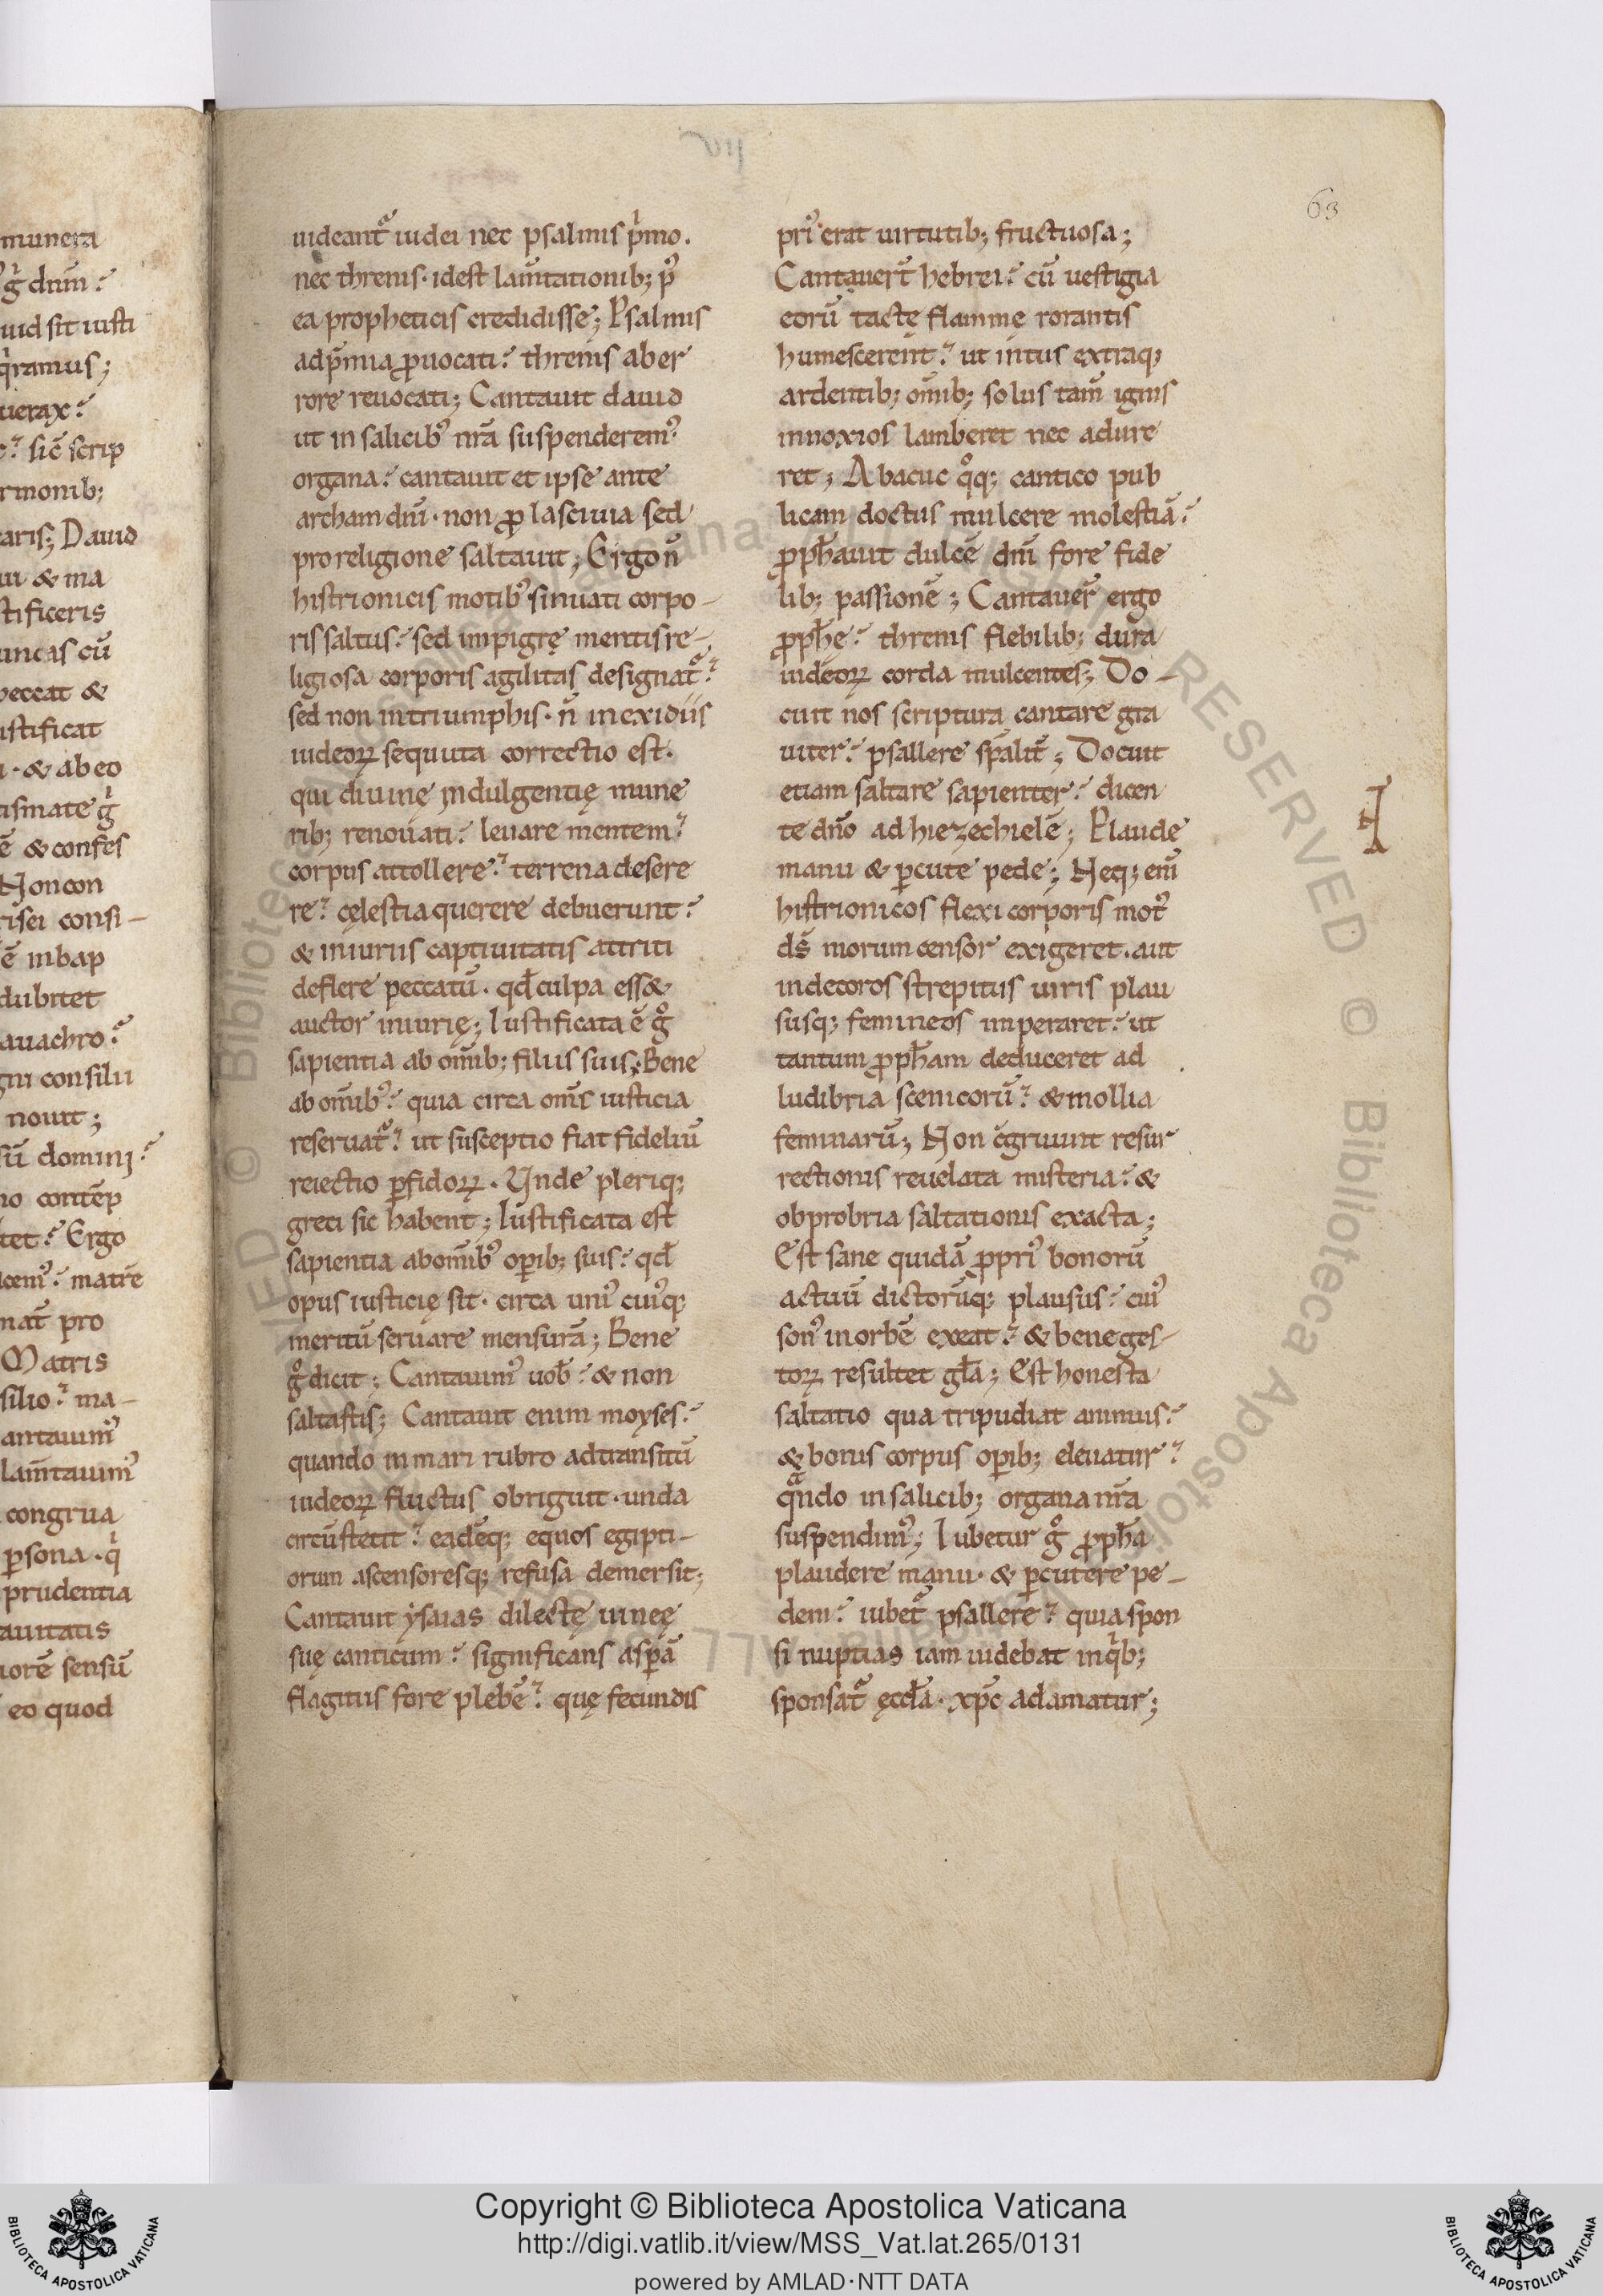 munera
g̾ dnm̄.
uid sit iusti
q̾ramus;
uerax.
sic̄ scrip
rmonib;
aris; Dauid
ui & ma
stificeris
uncas cū
peccat &
ustificat
& ab eo
tismate g̾
ē & confes
Non con
risei consi-
ē in bap
dubitet
gni consilii
nouit;
sū domini.
no contēp
tet. Ergo
nat̄ pro
Matris
silio. ma-
antauim᾽
lam̄tauim᾽
congrua
ꝑsona · q̾
prudentia
auitatis
iorē sensū
eo quod
lia
63
uideant᷑ iudei nec psalmis p̾mo.
nec threnis · idest lam̄tationib; p᾽
ea propheticis credidisse; Psalmis
ad p̄mia ꝓuocati. threnis ab er
rore reuocati; Cantauit dauid
ut in salicib᾽ nr̄a suspenderem᾽
organa. cantauit et ipse ante
archam dn̄i · non ꝓ lasciuia sed
pro religione saltauit; Ergo n̄
histrionicis motib᾽ sinuati corpo-
ris saltus. sed impigrę mentis re-
ligiosa corporis agilitas designat᷑.
sed non in triumphis · n̄ in exidiis
iudeoꝝ sequuta correctio est.
qui diuinę indulgentię mune
rib; renouati. leuare mentem.
corpus attollere. terrena desere
re. cęlestia querere debuerunt.
& iniuriis captiuitatis attriti
deflere peccatū · qđ culpa ess&
auctor iniurię; Iustificata ē g̊
sapientia ab om̄ib; filiis suis; Bene
ab om̄ib᾽. quia circa om̄s iusticia
reseruat᷑. ut susceptio fiat fideliū
reiectio ꝑfidoꝝ. Unde pleriq;
greci sic habent; Iustificata est
sapientia ab om̄ib᾽ oꝑib; suis. qđ
opus iusticię sit · circa uni᾽ cui᾽q;
meritū seruare mensurā; Bene
g̊ dicit; Cantauim᾽ uob̄. & non
saltastis; Cantauit enim moyses.
quando in mari rubro ad transitū
iudeoꝝ fluctus obriguit · unda
circūstetit. eadēq; equos egipti-
orum ascensoresq; refusa demersit;
Cantauit ysaias dilectę uineę
suę canticum. significans asꝑā
flagitiis fore plebē. quę fecundis
pri᾽ erat uirtutib; fructuosa;
Cantauer̄t hebrei. cū uestigia
eorū tactę flamme rorantis
humescerent. ut intus extraq;
ardentib; om̄ib; solus tam̄ ignis
innoxios lamberet nec adure
ret; Abacuc q̊q; cantico pub
licam doctus mulcere molestiā.
ꝓph̄auit dulcē dn̄i fore fide
lib; passionē; Cantauer̄ ergo
ꝓph̄ę. threnis flebilib; dura
iudeoꝝ corda mulcentes; Do-
cuit nos scriptura cantare gra
uiter. psallere sp̄alit̄; Docuit
etiam saltare sapienter. dicen
te dn̄o ad hiezechielē; Plaude
manu & ꝑcute pede; Neq; eni̅
histrionicos flexi corporis mot᾽
ds̄ morum censor exigeret. aut
indecoros strepitus uiris plau
susq; femineos imperaret. ut
tantum ꝓph̄am deduceret ad
ludibria scenicorū. & mollia
feminarū; Non c̄gruunt resur
rectionis reuelata misteria. &
obprobria saltationis exacta;
Est sane quidā ꝓpri᾽ bonorū
actuū dictorūq; plausus. cui᾽
son᾽ in orbē exeat. & bene ges-
toꝝ resultet gl̄a; Est honesta
saltatio qua tripudiat animus.
& bonis corpus oꝑib; eleuatur.
qͣndo in salicib; organa nr̄a
suspendim᾽; Iubetur g̊ ꝓph̄a
plaudere manu · & ꝑcutere pe-
dem. iubet᷑ psallere. quia spon
si nuptias iam uidebat in q̾b;
sponsat᷑ ęccl̄a · xp̄c adamatur;
Copyright © Biblioteca Apostolica Vaticana
http://digi.vatlib.it/view/MSS_Vat.lat.265/0131
powered by AMLAD·NTT DATA
BIBLIOTECA APOSTOLICA VATICANA
BIBLIOTECA APOSTOLICA VATICANA